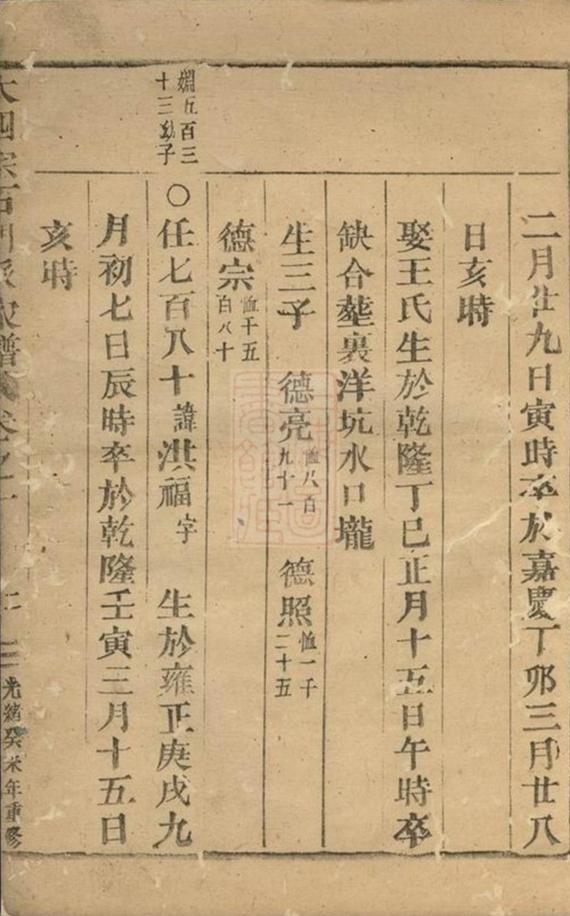 二月廿九日寅時卒於嘉慶丁卯三月廿八
日亥時
娶王氏生於乾隆丁巳正月十五日午時卒
缺合塟裏洋坑水口壠
生三子 德亮恤八百九十一 德照恤一千二十五
德宗恤千五百八十
嫺五百三十三幼子
○任七百八十諱洪福字 生於雍正庚戌九
月初七日辰時卒於乾隆壬寅三月十五日
亥時
光緒癸未年重修